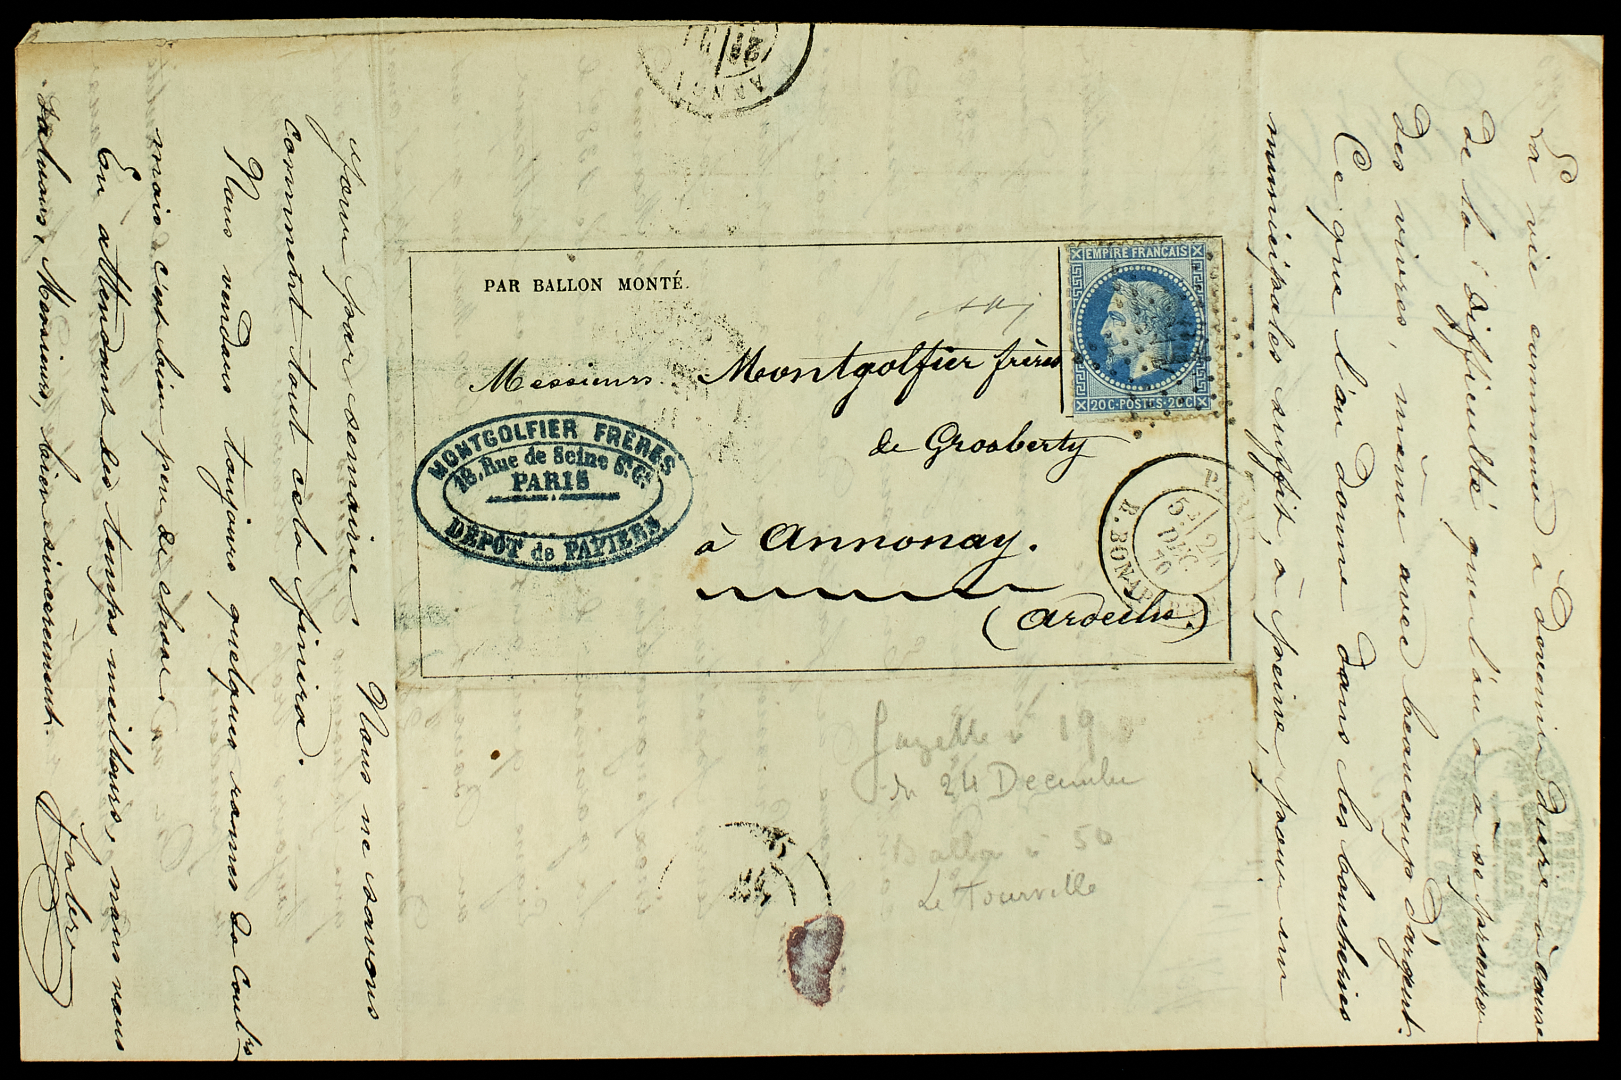 La vie commence à devenir dure à cause
de la difficulté que l'on a à se procurer
des vivres, même avec beaucoup d'argent.
Ce que l'on donne dans les boucheries
municipales suffit, à peine, pour un
PAR BALLON MONTÉ.
EMPIRE FRANÇAIS
20C-POSTES-20C
Messieurs Montgolfier frères
de Grosberty
à Annonay.
(Ardèche.)
MONTGOLFIER FRÈRES
18, Rue de Seine St Gn
PARIS
DÉPÔT de PAPIERS
PARIS
5E 24
DEC.
70
R. BONAPARTE
ANNO
Gazette n° 19
du 24 Decembre
Ballon n° 50
Le Tourville
jour par semaine. Nous ne savons
comment tout cela finira.
Nous vendons toujours quelques rames de Coul.rs
mais c'est bien peu de chose.
En attendant des temps meilleurs, nous vous
saluons, Messieurs, bien sincèrement.